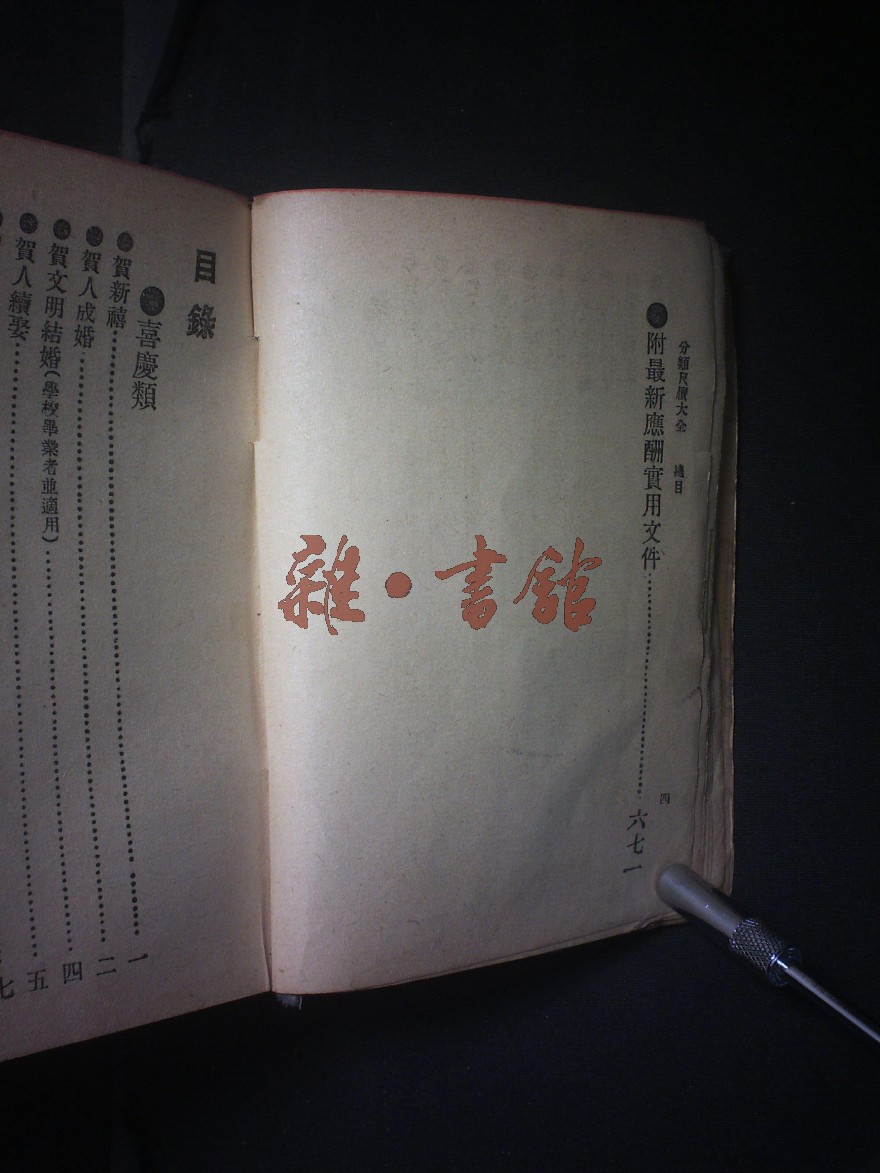 分類尺牘大全 總目 四
附最新應酬實用文件……六七一
目錄
喜慶類
賀新禧……一
賀人成婚……二
賀文明結婚(學校畢業者並適用)……四
賀人續娶……五
七
雜•書館